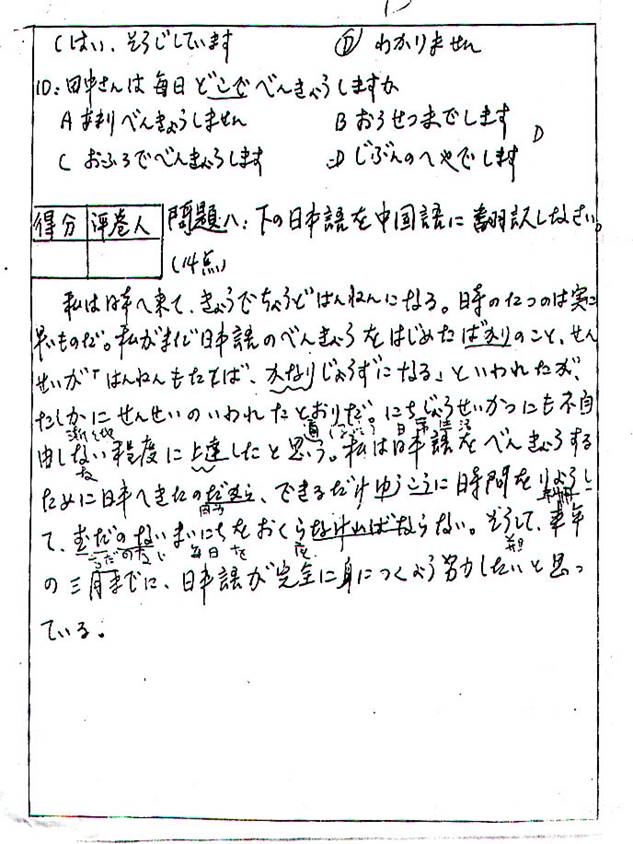 Cはい、そうじしています Ⓓ わかりません
10：田中さんは毎日どこでべんきょうしますか
A あまりべんきょうしません B おうせつまでします D
C おふろでべんきょうします D じぶんのへやでします
得分 评卷人 問題八：下の日本語を中国語に翻訳しなさい。
(14点)
私は日本へ来て、きょうでちょうどはんねんになる。日時のたつのは実に
早いものだ。私がまだ日本語のべんきょうをはじめたばかりのこと、せん
せいが「はんねんもたてば、かなりじょうずになる」といわれたが、
たしかにせんせいのいわれたとおりだ。にちじょうせいかつにも不自
由しない程度に上達したと思う。私は日本語をべんきょうする
ために日本へきたのだから、できるだけゆうこうに時間をりようし
て、むだのないまいにちをおくらなければならない。そうして、来年
の三月までに、日本語が完全に身につくよう努力したいと思っ
ている。